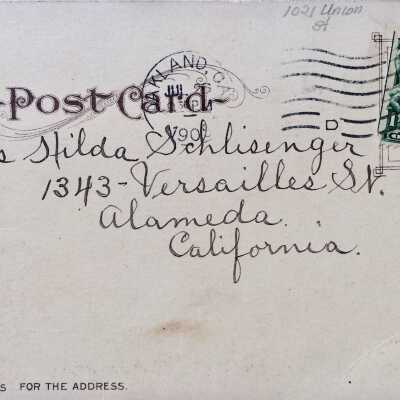 1021 Union
St
OAKLAND, CA
Post Card
s Hilda Schlisenger
1343 - Versailles St.
Alameda.
California.
D
S FOR THE ADDRESS.